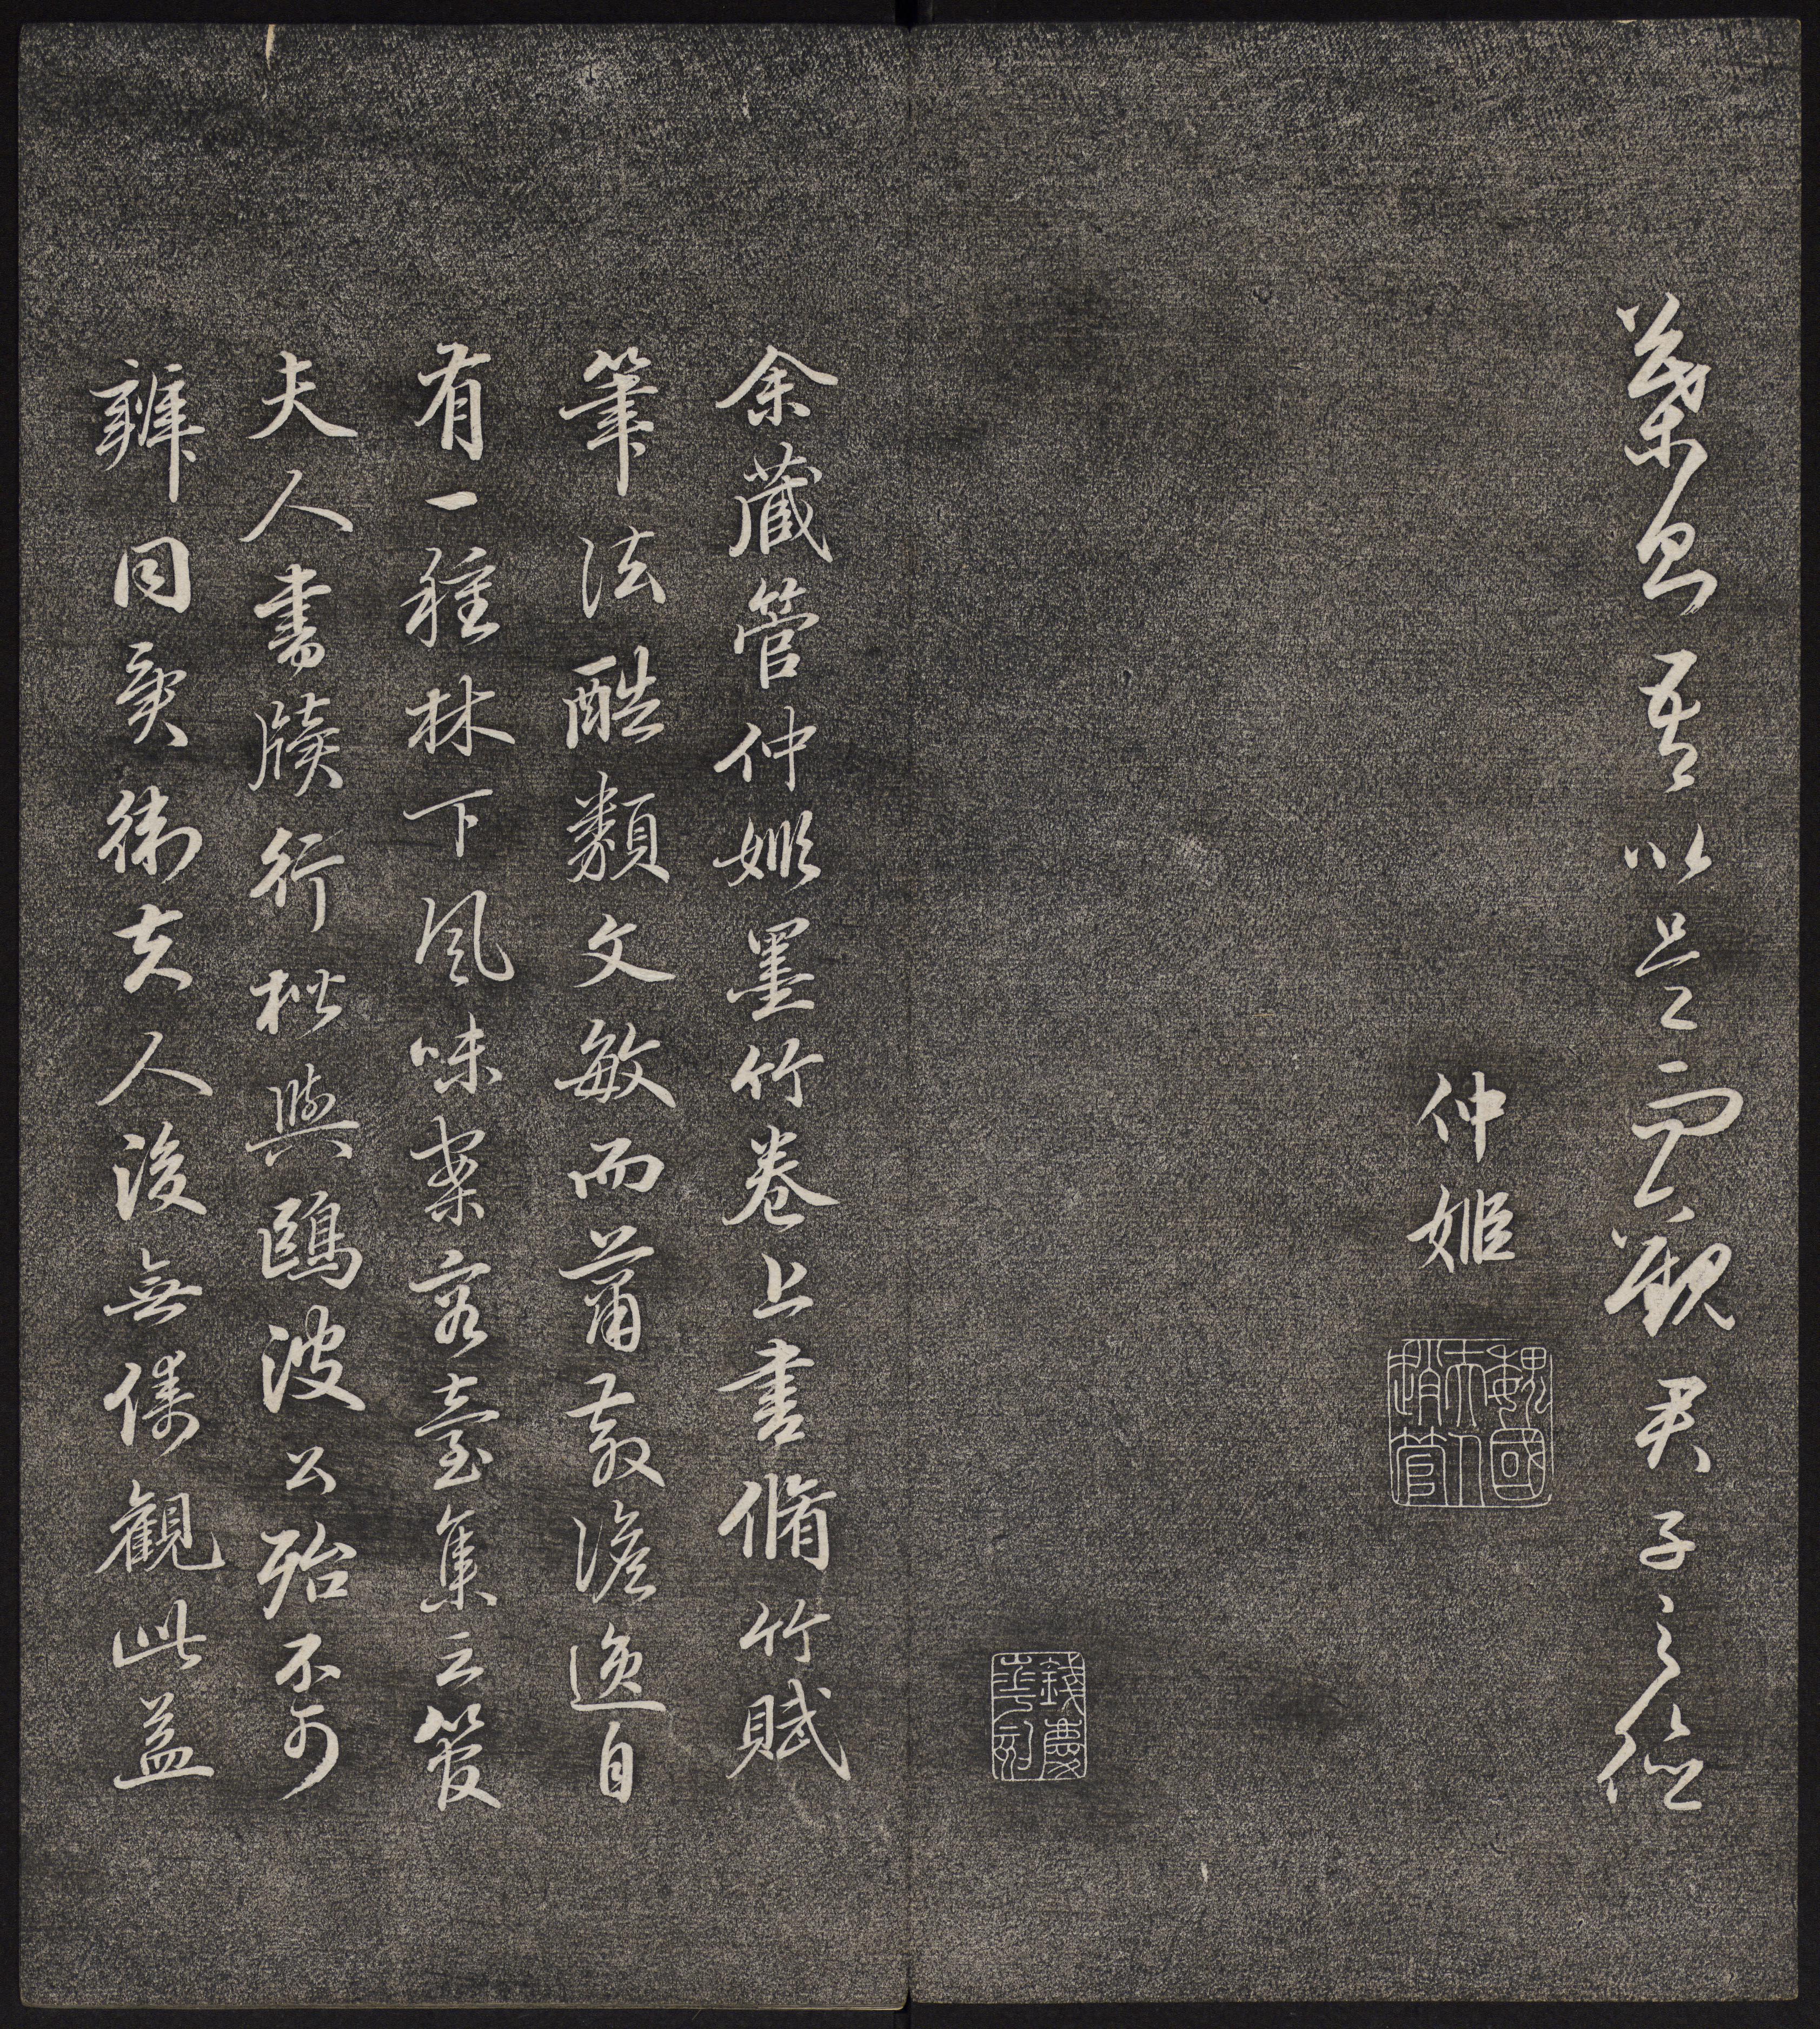 葉則吾以是而觀君子之德
仲姬
魏國夫人趙管
余藏管仲姬墨竹卷上書脩竹賦
筆法酷類文敏而蕭散澹逸自
有一種林下風味案容臺集云管
夫人書牘行楷與鷗波公殆不可
辨同異衛夫人後無儔觀此益